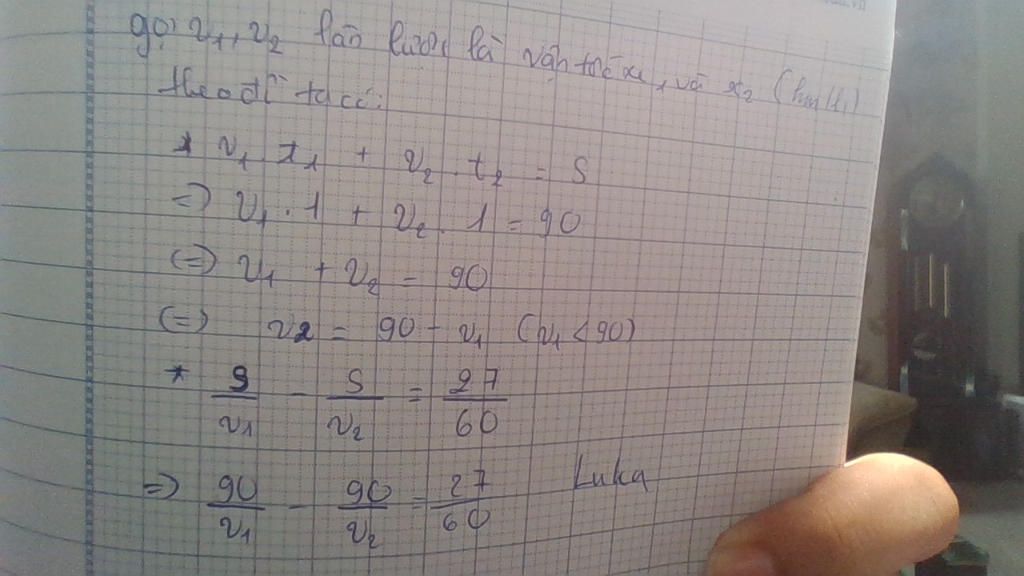 gọi v₁, v₂ lần lượt là vận tốc xe₁ và xe₂ (km/h)
theo đề ta có:
* v₁ t₁ + v₂ . t₂ = S
=> v₁ . 1 + v₂ . 1 = 90
(=) v₁ + v₂ = 90
(=) v₂ = 90 - v₁ (v₁ < 90)
* S/v₁ - S/v₂ = 27/60
=> 90/v₁ - 90/v₂ = 27/60 Luka